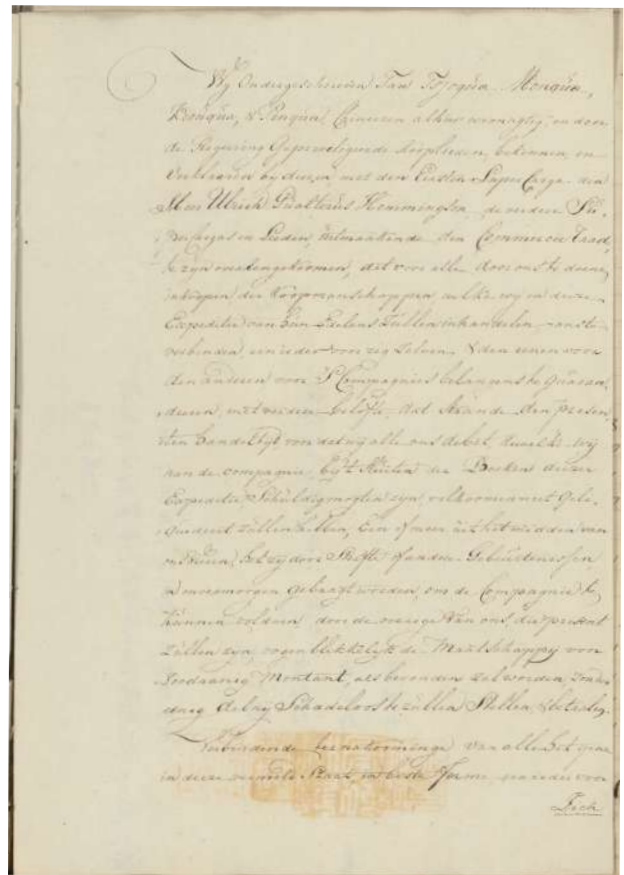 Wij Ondergeschreven Tan Tsjoqua, Monqua,
Bonqua, & Pinqua, Chineesen alhier woonagtig, en door
de Regeering Gepriviligeerde kooplieden, bekennen, en
verklaaren bij deezen, met den Eersten Super Carga den
Heer Ulrich Gualterus Hemmingson, de verdere Su-
percargas en Leeden, uitmaakende den Commercie Raad,
te zijn overeengekoomen, dat voor alle door ons te doene
inkoopen der koopmanschappen, welke wij in deeze
Expeditie van hun Edelens zullen inhandelen, ons te
verbinden, een ieder voor zig zelven, & den eenen voor
den anderen voor 's Compagnies belangens te guaran-
deeren, met verdere belofte, dat staande den presen-
ten handeltijd voor dat wij alle ons debet, dewelke wij
aan de compagnie bij 't sluiten der Boeken deezer
Expeditie schuldig mogten zijn, volkoomen niet Gele-
quideert zullen hebben, Een of meer uit het midden van
ons, het zij door Sterfte of andere Gebeurtenissen
in onvermogen gebragt wierden, om de Compagnie te
kunnen voldoen, door de overige van ons, die present
zullen zijn, oogenblikkelijk de Maatschappij voor
zoodaanig Montant, als bevonden zal worden, zonder
eenig delaij Schadeloos te zullen Stellen, & betaalen.
Verbindende ter nakoominge van alle het geene
in deeze vermeld Staat, in beste forma, een ieder voor
Zich